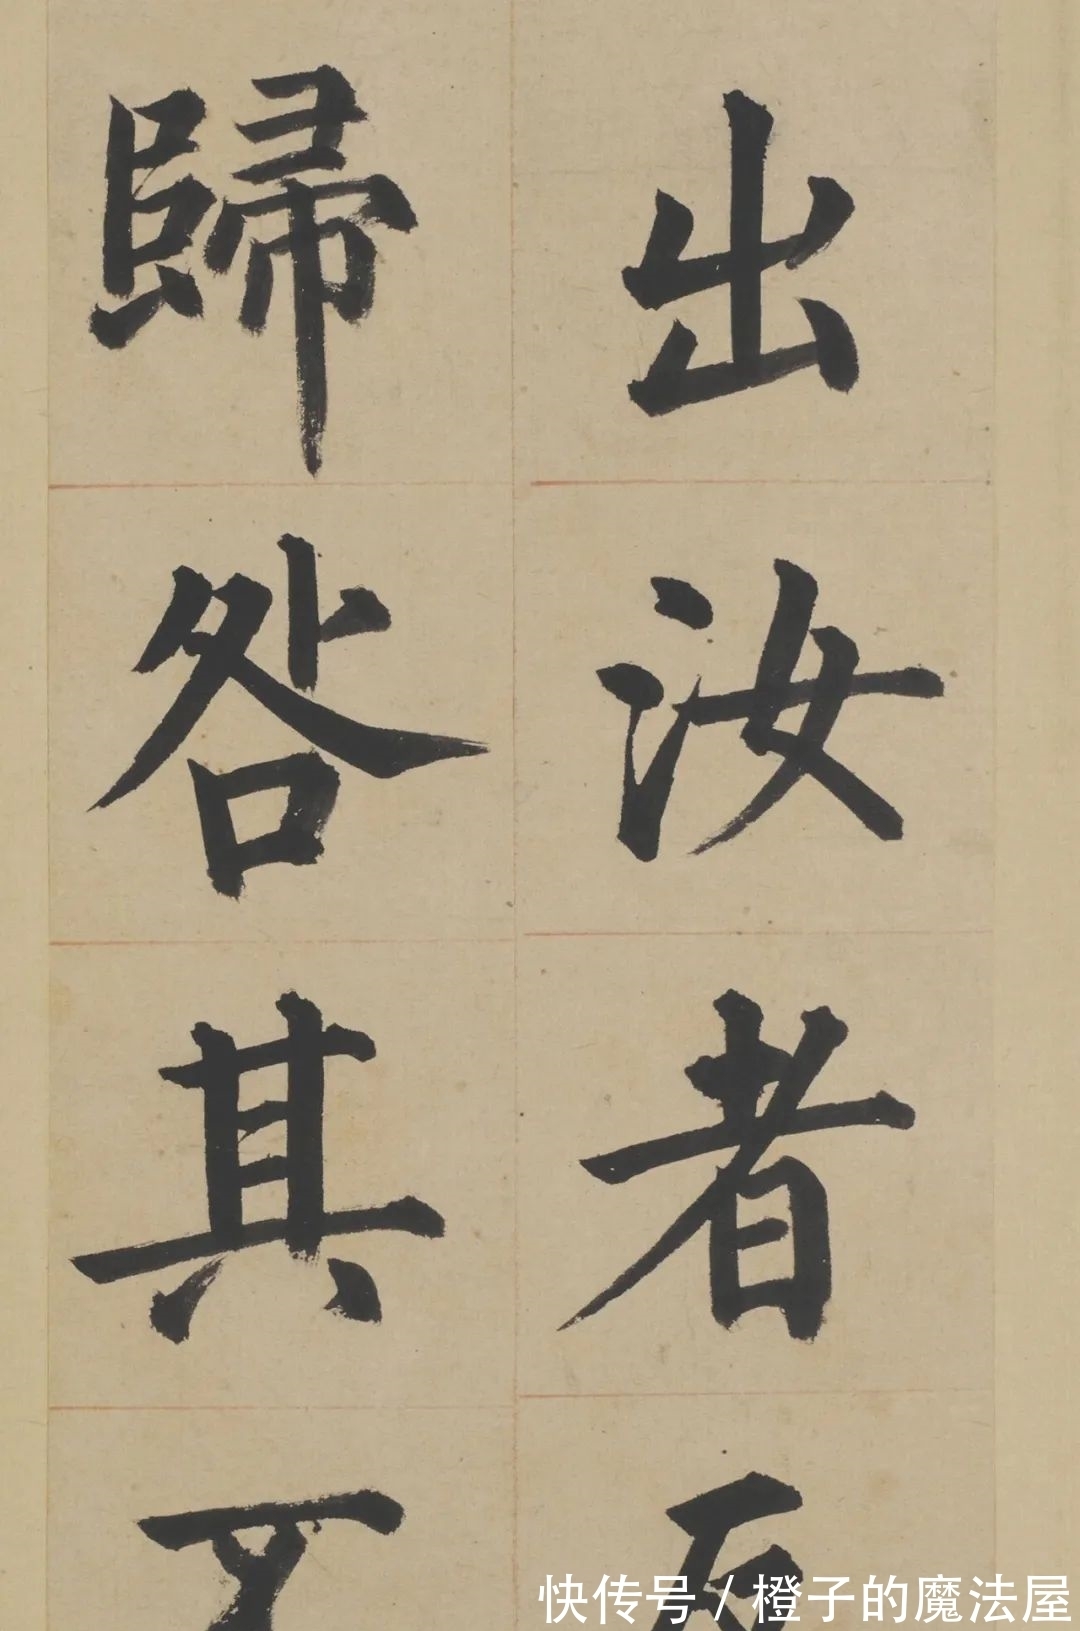 出汝者
歸咎其
快传号 / 橙子的魔法屋